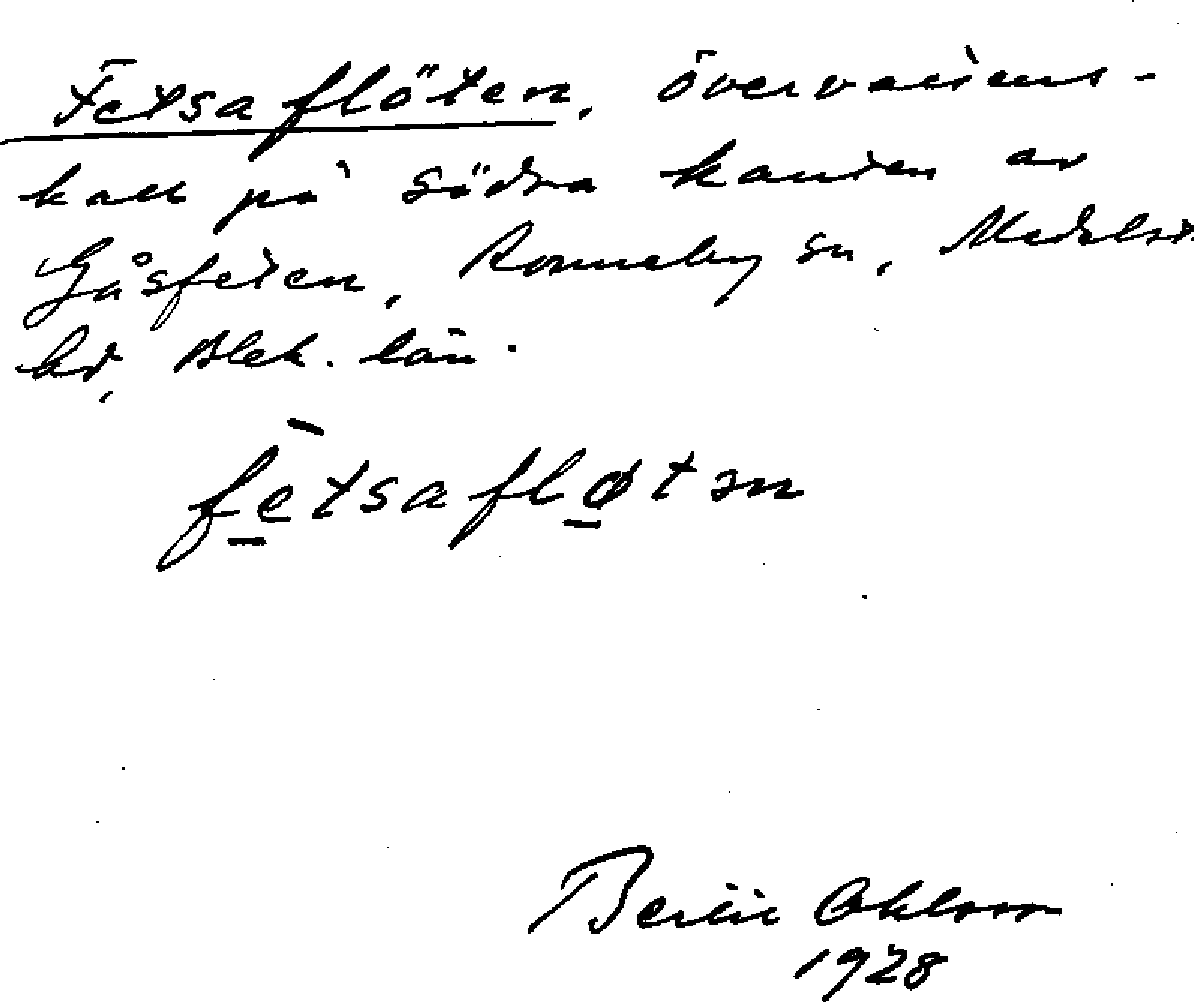 Fetsaflöten, övervattens-
kall på södra kanten av
Gåsfeten, Ronneby sn, Medelst.
hd, Blek. län.
fetsafløtən
Bertil Ohlsson
1928